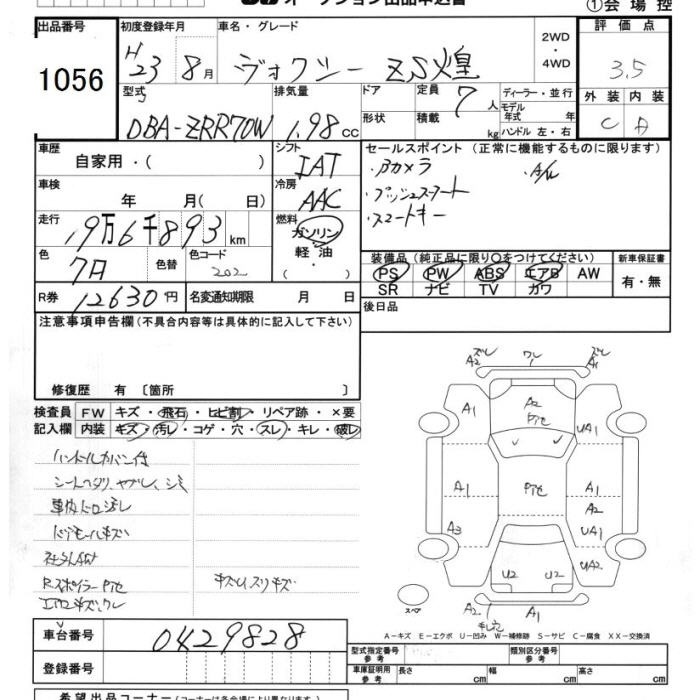 オークション出品申込書
①会場控
出品番号 初度登録年月 車名・グレード 2WD・4WD 評価点
1056 H23 8月 ヴォクシー ZS煌 3.5
型式 排気量 ドア 定員 7人 ディーラー・並行 外装 内装
DBA-ZRR70W 1.98cc 形状 積載 kg モデル年式 年 ハンドル 左・右 C A
車歴 自家用・( ) シフト IAT セールスポイント (正常に機能するものに限ります)
車検 年 月( 日) 冷房 AAC ・Bカメラ ・A/W
・プッシュスタート
走行 19万6千893km 燃料 ガソリン 軽油 ・スマートキー
色 色替 色コード 202 装備品 (純正品に限り○をつけてください) 新車保証書
PS PW ABS エアB AW 有・無
SR ナビ TV カワ
R券 12630円 名変通知期限 月 日 後日品
注意事項申告欄 (不具合内容等は具体的に記入して下さい)
修復歴 有 〔箇所 〕
検査員 FW キズ・飛石・ヒビ割・リペア跡・×要
記入欄 内装 キズ・汚レ・コゲ・穴・スレ・キレ・破レ
ハンドルカバー付
シートヘタリ、ヤブレ、シミ
車内ドロ汚レ
ドアモールキズ
社外AW
R.スポイラーPセ
エアロキズ、ワレ
キズU、スリキズ
ズレ ワレ ズレ
A2 A1
A1 A2 Pセ UA1
A1 Pセ A1 A2
A3 UA1
U2 U2 UA2
スペア A2 A1
A-キズ E-エクボ U-凹み W-補修跡 S-サビ C-腐食 XX-交換済
車台番号 0429828 型式指定番号 参考 類別区分番号 参考
登録番号 車庫証明用 参考 長さ cm 幅 cm 高さ cm
希望出品コーナー (コーナーは各会場により異なります)